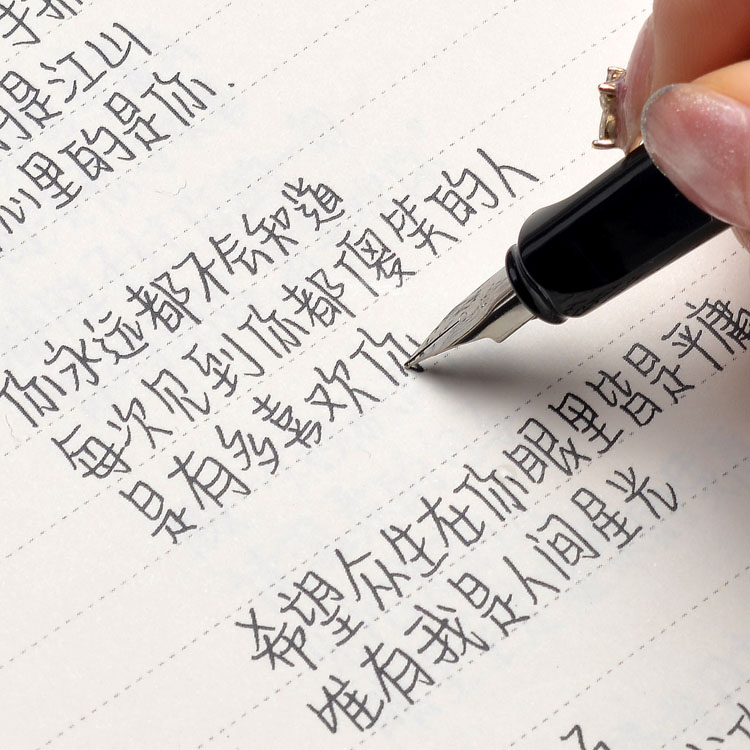 是江山
心里的是你.
你永远都不会知道
每次见到你都傻笑的人
是有多喜欢你
希望众生在你眼里皆是平庸
唯有我是人间星光